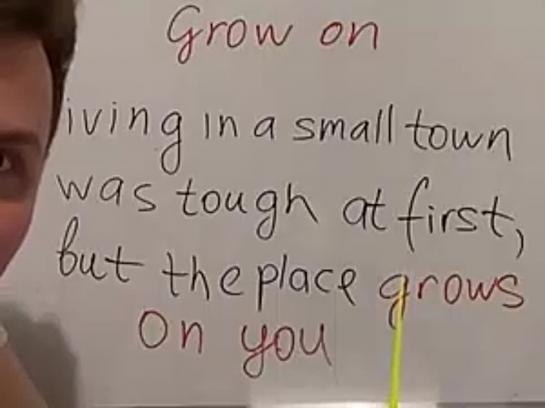 Grow on
iving in a small town
was tough at first,
but the place grows
on you